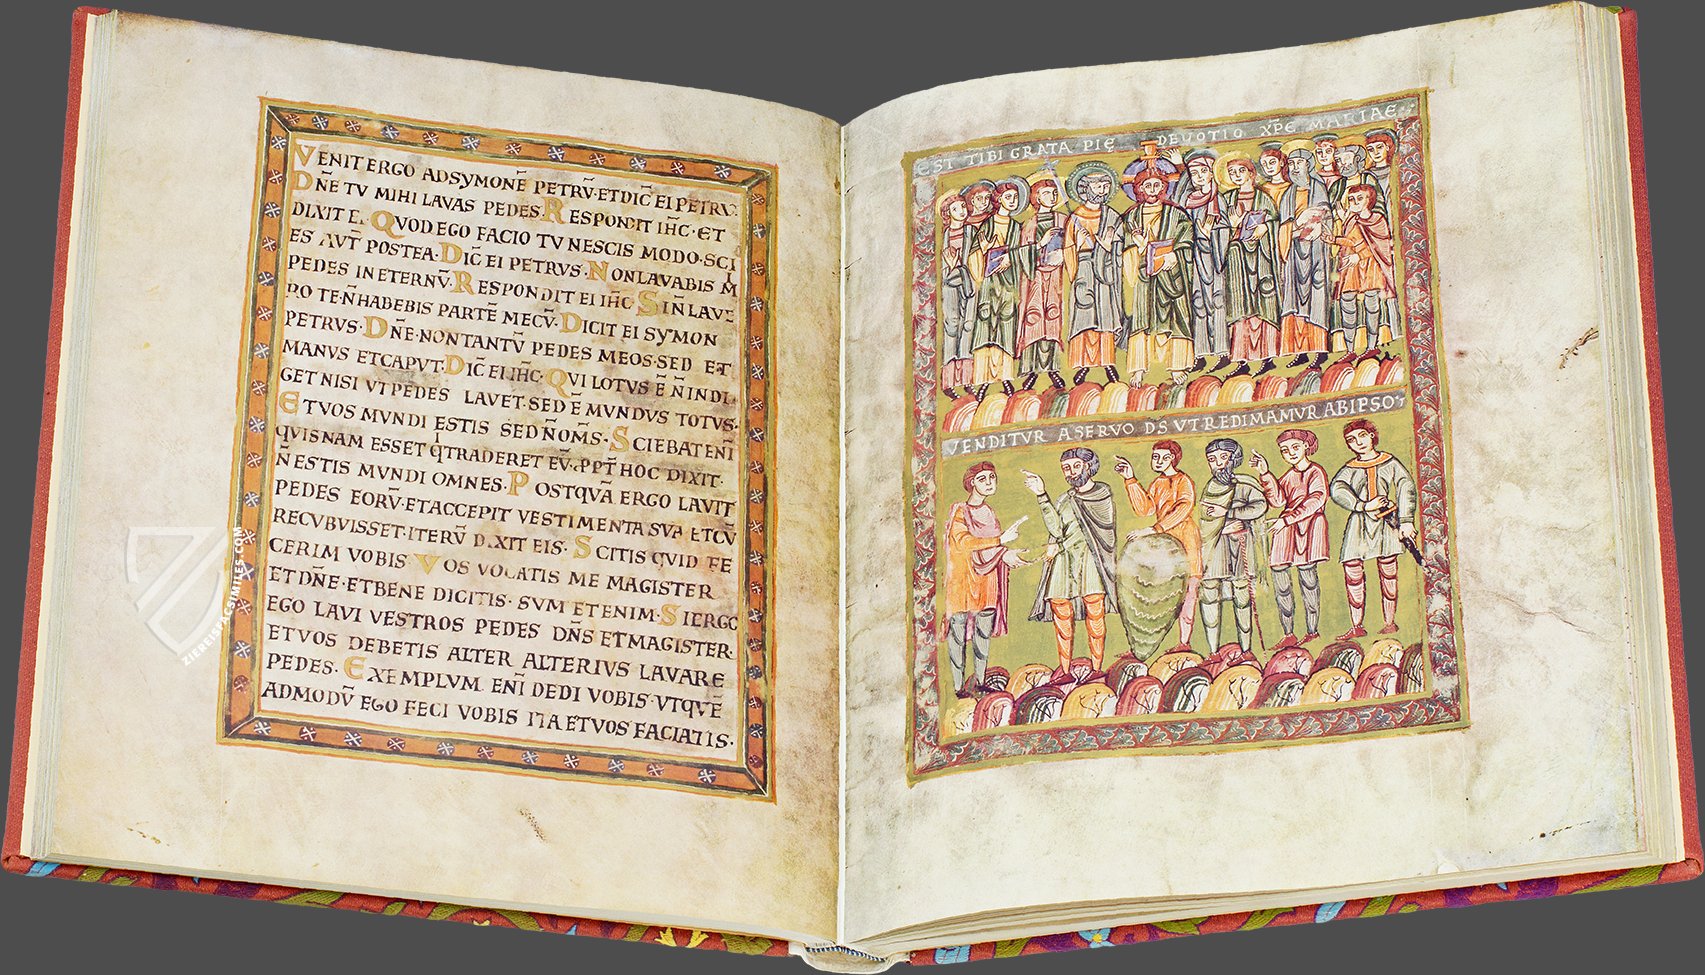 VENIT ERGO ADSYMONĒ PETRV̄· ET DIC̄ EI PETRV:
DN̄E TV MIHI LAVAS PEDES· RESPONDIT IH̄C· ET
DIXIT EI· QVOD EGO FACIO TV NESCIS MODO· SCI
ES AVT̄ POSTEA· DIC̄ EI PETRVS· NON LAVABIS M
PEDES IN ETERNV̄· RESPONDIT EI IH̄C· SI N̄ LAVE
RO TE· N̄ HABEBIS PARTĒ MECV̄· DICIT EI SYMON
PETRVS· DN̄E· NON TANTV̄ PEDES MEOS· SED ET
MANVS ET CAPVT· DIC̄ EI IH̄C· QVI LOTVS Ē N̄ INDI·
GET NISI VT PEDES LAVET· SED Ē MVNDVS TOTVS·
ET VOS MVNDI ESTIS SED N̄ OM̄S· SCIEBAT ENĪ
QVISNAM ESSET QͥTRADERET EV̄· PPT̄ HOC DIXIT·
N̄ ESTIS MVNDI OMNES· POSTQVĀ ERGO LAVIT
PEDES EORV̄· ET ACCEPIT VESTIMENTA SVA ET CV̄
RECVBVISSET· ITERV̄ DIXIT EIS· SCITIS QVID FE
CERIM VOBIS VOS VOCATIS ME MAGISTER
ET DN̄E· ET BENE DICITIS· SVM ETENIM· SI ERGO
EGO LAVI VESTROS PEDES DN̄S ET MAGISTER·
ET VOS DEBETIS ALTER ALTERIVS LAVARE
PEDES· EXEMPLVM ENĪ DEDI VOBIS· VT QVĒ
ADMODV̄ EGO FECI VOBIS ITA ET VOS FACIATIS·
ZIEREIS FACSIMILES.COM
EST TIBI GRATA PIĘ DEVOTIO XP̄E MARIAE
VENDITVR A SERVO DS VT REDIMAMVR AB IPSO